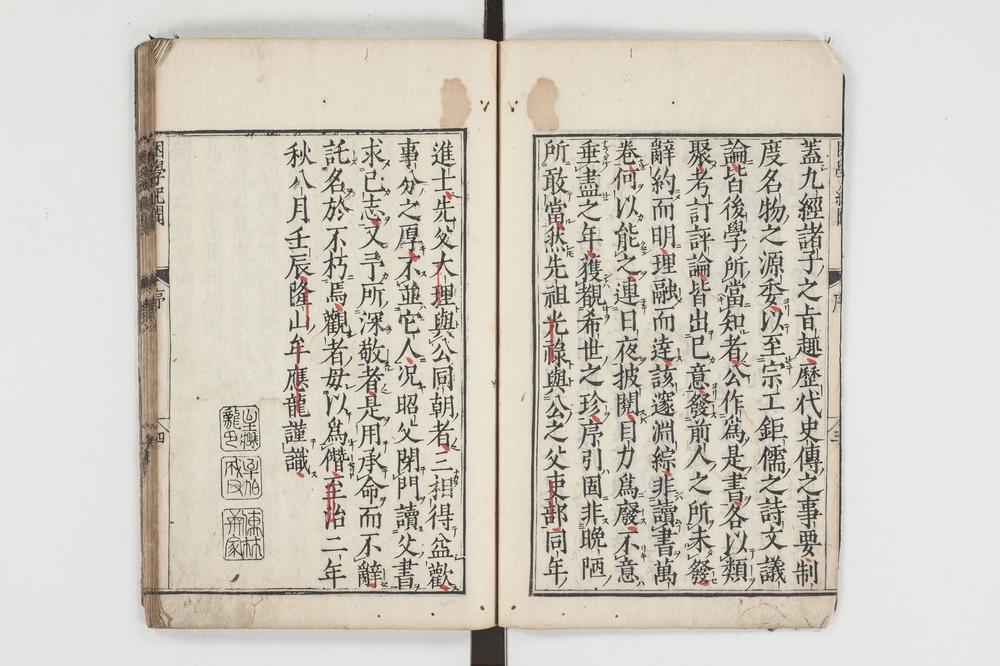 蓋九經諸子之旨趣歷代史傳之事要制
度名物之源委以至宗工鉅儒之詩文議
論皆後學所當知者公作為是書各以類
聚考訂評論皆出已意發前人之所未發
辭約而明理融而達該邃淵綜非讀書萬
卷何以能之連日夜披閱目力為廢不意
垂盡之年獲覩希世之珍序引固非晚陋
所敢當然先祖光祿與公之父吏部同年
進士先父大理與公同朝者三相得益歡
事分之厚不並它人况昭父閉門讀父書
求已志又予所深敬者是用承命而不辭
託名於不朽焉觀者毋以為僭至治二年
秋八月壬辰隆山牟應龍謹識
困學紀聞
序
四